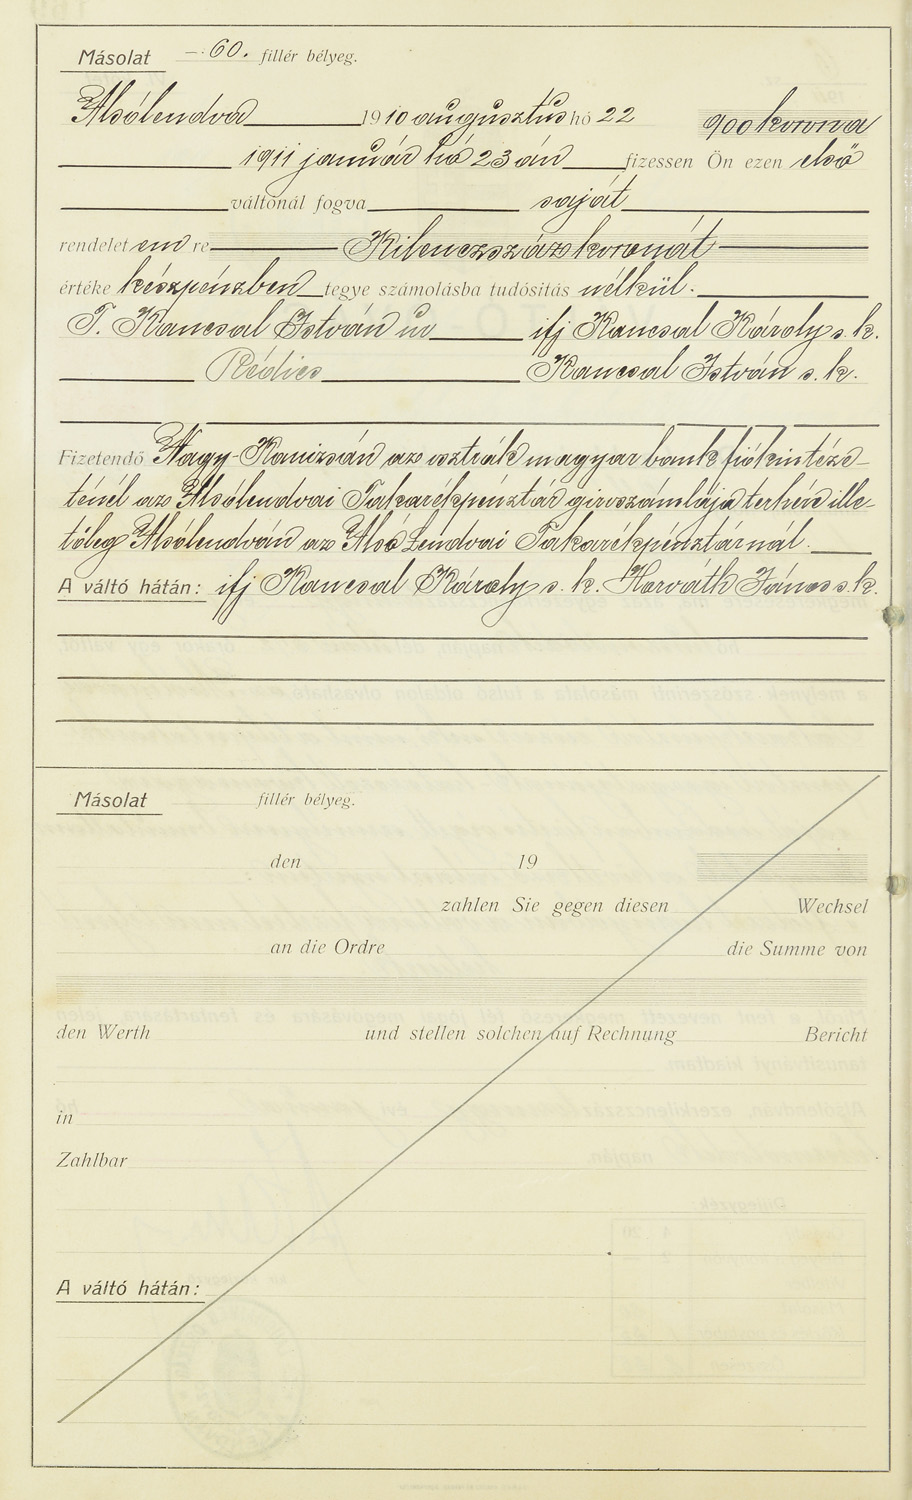 Másolat —.60. fillér bélyeg.
Alsólendva 1910 augusztus hó 22 900 korona
1911 január hó 23 án fizessen Ön ezen első
váltónál fogva saját
rendelet em re Kilenczszáz koronát
értéke készpénzben tegye számolásba tudósítás nélkül.
T. Kancsal István úr ifj Kancsal Károly s. k.
Rédics Kancsal István s. k.
Fizetendő Nagy-Kanizsán az osztrák magyar bank fiókintéze-
ténél az Alsólendvai Takarékpénztár giroszámlája terhére ille-
tőleg Alsólendván az Alsó Lendvai Takarékpénztárnál.
A váltó hátán: ifj Kancsal Károly s. k. Horváth János s. k.
Másolat fillér bélyeg.
den 19
zahlen Sie gegen diesen Wechsel
an die Ordre die Summe von
den Werth und stellen solchen auf Rechnung Bericht
in
Zahlbar
A váltó hátán: